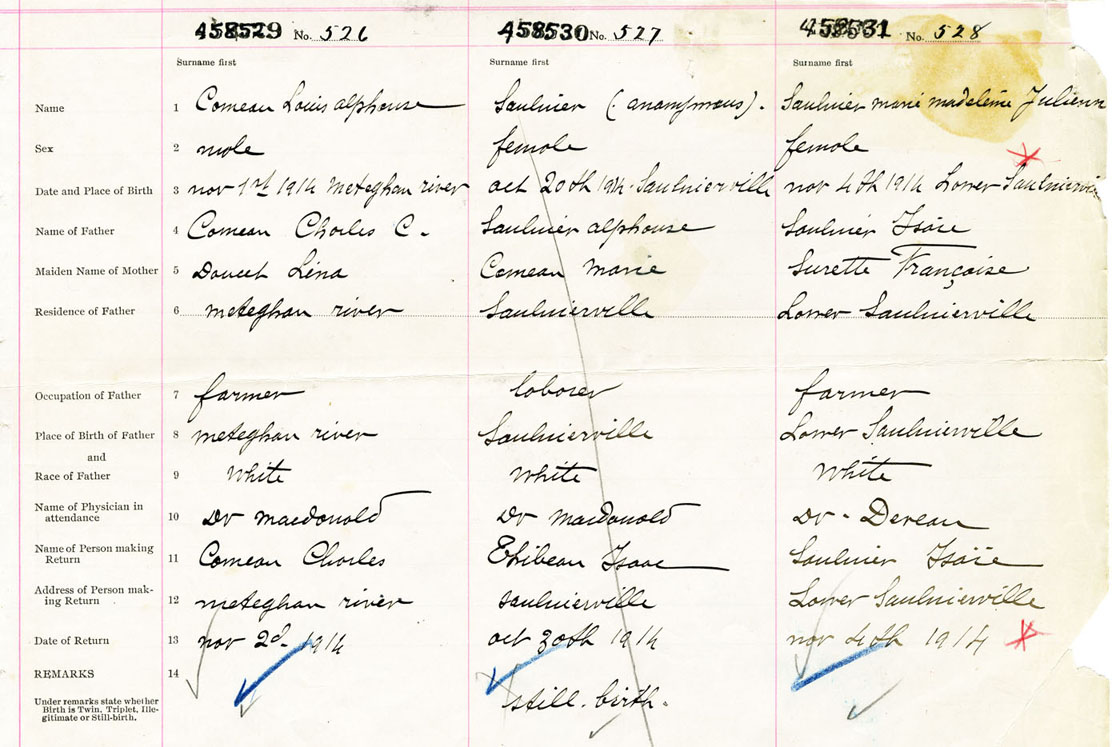 458529 No. 526 458530 No. 527 458531 No. 528
Surname first Surname first Surname first
Name 1 Comeau Louis alphonse Saulnier (anonymous). Saulnier marie madeleine Julienn
Sex 2 male female female
Date and Place of Birth 3 nov 1st 1914 Meteghan river oct 20th 1914 Saulnierville nov 4th 1914 Lower Saulnierville
Name of Father 4 Comeau Charles C. Saulnier alphonse Saulnier Isaie
Maiden Name of Mother 5 Doucet Léna Comeau marie Surette Françoise
Residence of Father 6 meteghan river Saulnierville Lower Saulnierville
Occupation of Father 7 farmer laborer farmer
Place of Birth of Father 8 meteghan river Saulnierville Lower Saulnierville
and
Race of Father 9 White White White
Name of Physician in
attendance 10 Dr macdonald Dr macdonald Dr - Dereau
Name of Person making
Return 11 Comeau Charles Thibeau Isaac Saulnier Isaïe
Address of Person mak-
ing Return 12 meteghan river Saulnierville Lower Saulnierville
Date of Return 13 nov 2d. 1914 oct 30th 1914 nov 4th 1914
REMARKS 14
Under remarks state whether
Birth is Twin, Triplet, Ille-
gitimate or Still-birth.
still. birth.